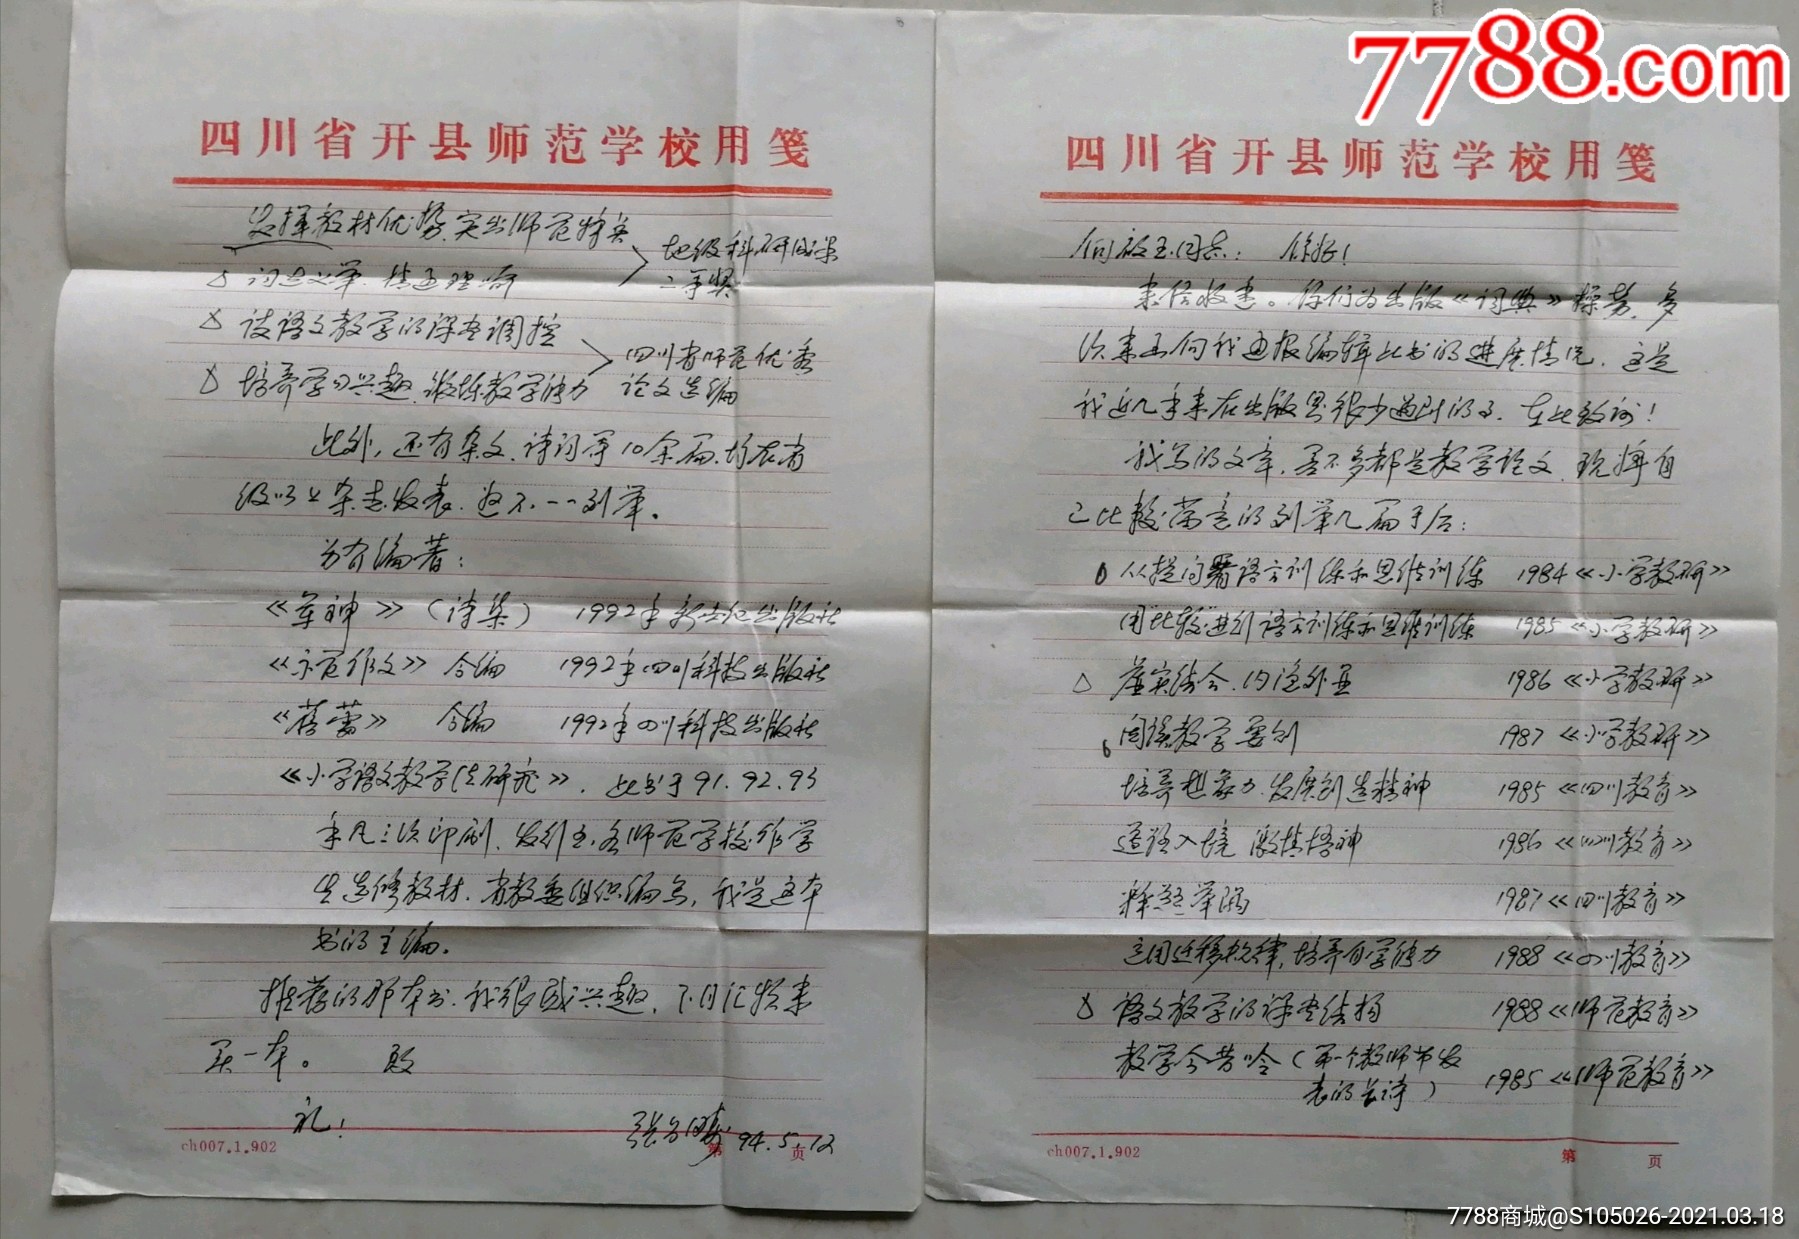 7788.com
四川省开县师范学校用笺
何启玉同志： 你好！
来信收悉。你们为出版《词典》操劳，多
次来函向我通报编辑此书的进展情况，这是
我近几年来在出版界很少遇到的了，在此致谢！
我写的文章，差不多都是教学论文，现将自
己比较满意的列举几篇于后：
从提问看语言训练和思维训练 1984《小学教研》
用"比较"进行语言训练和思维训练 1985《小学教研》
△ 虚实结合，内 外 1986《小学教研》
阅读教学要 1987《小学教研》
培养想象力，发展创造精神 1985《四川教育》
入境 激情 神 1986《四川教育》
释 1987《四川教育》
运用迁移规律，培养自学能力 1988《四川教育》
△ 语文教学的课堂结构 1988《师范教育》
教学今昔吟（第一个教师节发
表的长诗） 1985《师范教育》
ch007.1.902 第 页
四川省开县师范学校用笺
发挥教材优势，突出师范特点
△ 文 情通理
地级科研成果
二等奖
△ 谈语文教学的课堂调控
△ 培养学习兴趣，锻炼教学能力
四川省师范优秀
论文选编
此外，还有杂文、诗词等10余篇，均在省
级以上杂志发表，这不一一列举。
另有编著：
《军神》（诗集） 1992年新世纪出版社
《示范作文》合编 1992年四川科技出版社
《蓓蕾》 合编 1992年四川科技出版社
《小学语文教学法研究》，此书于91.92.93
年凡三次印刷，发行全 各师范学校作学
生选修教材。省教委组织编写，我是这本
书的主编。
推荐的那本书，我很感兴趣，下月汇款来
买一本。 致
礼！
张 94.5.12
ch007.1.902 第 页
7788商城@S105026-2021.03.18